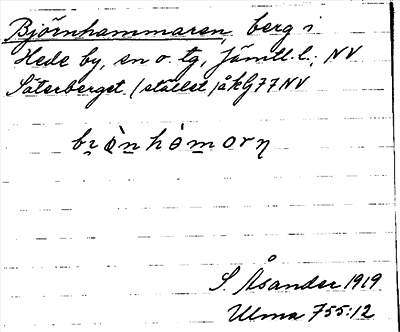 Björnhammaren, berg i
Hede by, sn o. tg, Jämtl. l.; NV
Säterberget. (stället på kG 77 NV
bi̯ò̱n hȧ̱m̱orn̥
S. Åsander 1919
Ulma 755:12